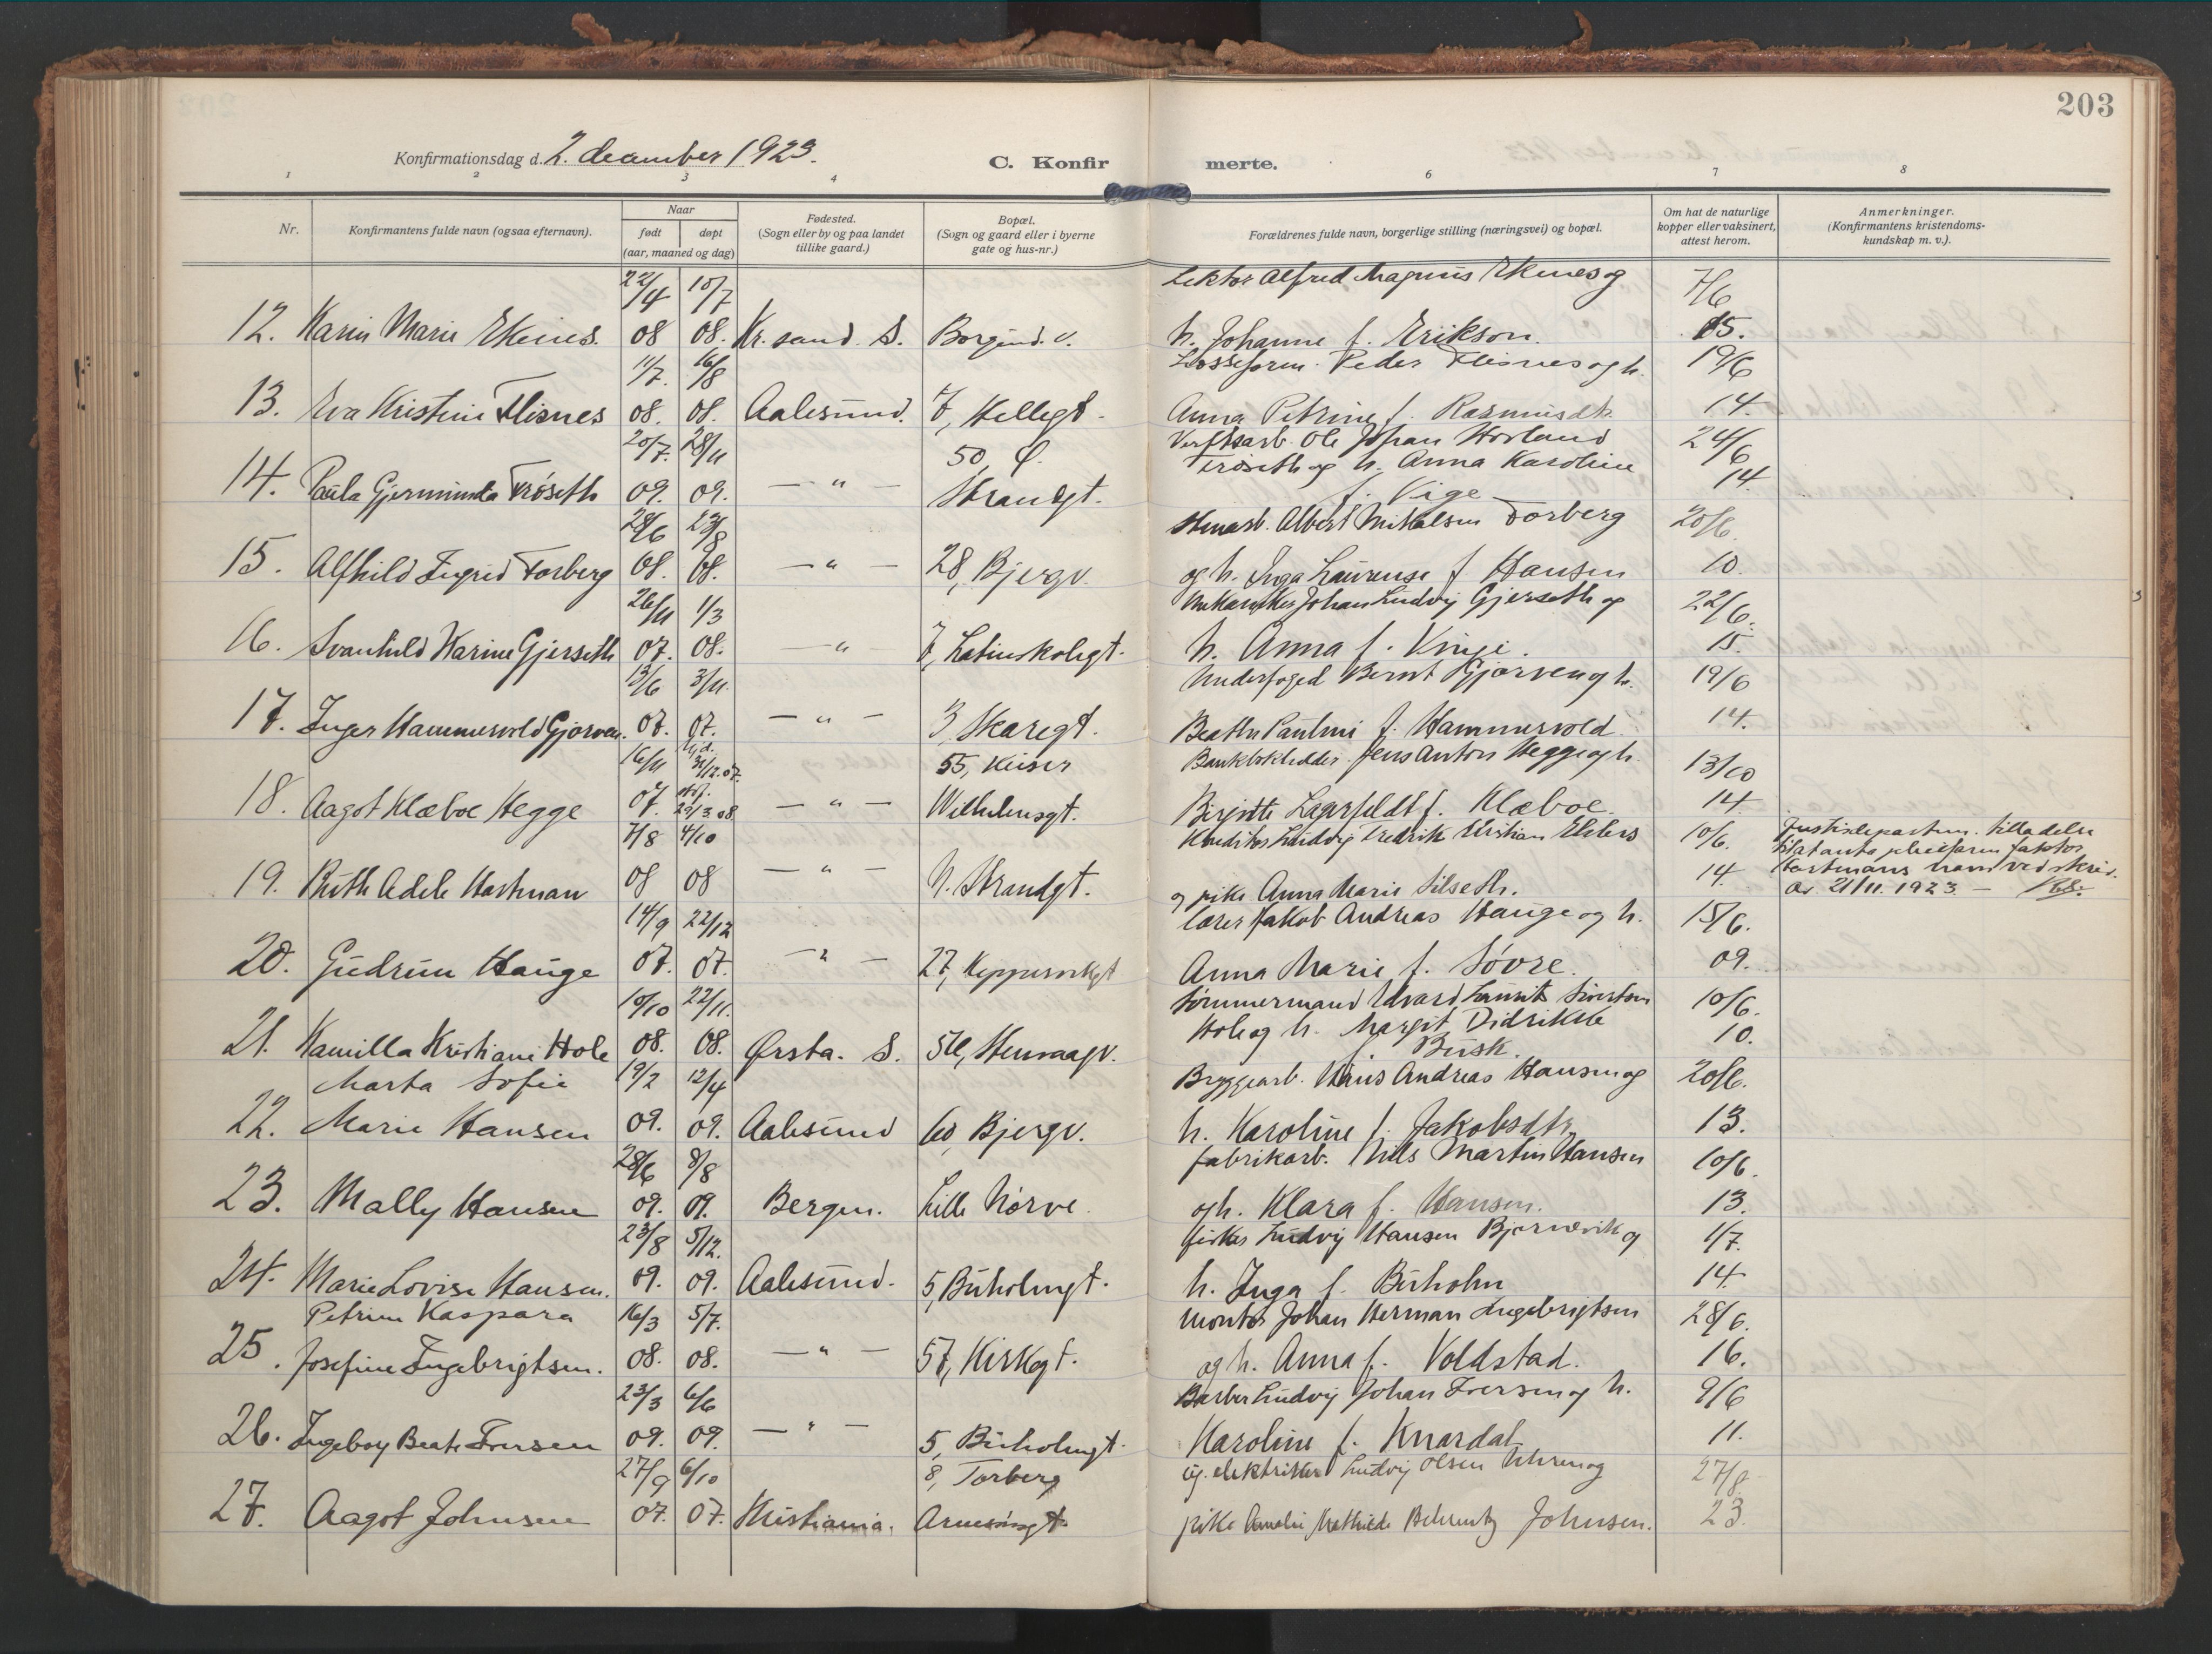 203
Konfirmationsdag d. 2. december 1923.
C. Konfir merte.
1 2 3 4 6 7 8
Nr. Konfirmantens fulde navn (ogsaa efternavn). Naar født døpt (aar, maaned og dag) Fødested. (Sogn eller by og paa landet tillike gaard.) Bopæl. (Sogn og gaard eller i byerne gate og hus-nr.) Forældrenes fulde navn, borgerlige stilling (næringsvei) og bopæl. Om hat de naturlige kopper eller vaksinert, attest herom. Anmerkninger. (Konfirmantens kristendoms-kundskap m. v.).
22/4 10/7 Lektor Alfred Magnus Ekenes og 7/6
12. Karin Marie Ekenes. 08 08. Kr. sand. S. Borgund. v. h. Johanne f. Erikson. 15.
11/7. 16/8 Losseform. Peder Flisnes og h. 19/6
13. Eva Kristine Flisnes 08. 08. Aalesund. 7, Hellegt. Anna Petrine f. Rasmusdtr. 14.
20/7. 28/11 50, Ø. Verftsarb. Ole Johan Hovland 24/6
14. Paula Gjerminda Frøseth 09. 09. — " — Strandgt. Frøseth og h. Anna Karoline 14.
f. Vige
28/6 23/8 Stenarb. Albert Mikalsen Torberg 20/6.
15. Alfhild Ingrid Torberg 08. 08. — " — 28, Bjergv. og h. Inga Laurense f. Hansen 10.
26/11 1/3 Mekaniker Johan Ludvig Gjerseth og 22/6.
16. Svanhild Karine Gjerseth 07. 08. — " 7, Latinskolegt. h. Anna f. Vinje. 15.
13/6 3/11. Underfoged Bernt Gjørven og h. 19/6
17. Inger Hammervold Gjørven. 07. 07. — " — 3, Skaregt. Beathe Pauline f. Hammervold. 14.
16/11 hjd. 31/12.07. 55, Keiser Bankbokholder Jens Anton Hegge og h. 13/10
18. Aagot Klæboe Hegge 07. 29/3.08 — " — Wilhelmsgt. Birgitte Lagerfeldt f. Klæboe. 14.
7/8 4/10 Konditor Ludvig Fredrik Kristian Ehlers 10/6. Justisdepartem. tilladelse
til at anta pleiefaren faktor
19. Ruth Adele Hartman 08 08 — " — N. Strandgt. og pike Anna Marie Silseth. 14. Hartmans navn ved skriv.
av 21/11. 1923. —
14/9 22/12 lærer Jakob Andreas Hauge og h. 15/6.
20. Gudrun Hauge 07. 07. — " — 27, Kippervikgt Anna Marie f. Søvre. 09.
10/10 22/11. Tømmermand Edvard Laurits Sivertsen 10/6.
21. Kamilla Kristiane Hole 08. 08. Ørsta. S. 51, Stenvaagv. Hole og h. Margit Didrikke 10.
f. Busk.
Marta Sofie 19/2 12/4 Bryggearb. Hans Andreas Hansen og 20/6.
22. Marie Hansen 09. 09. Aalesund 60 Bjergv. h. Karoline f. Jakobsdtr. 13.
28/6 8/8 fabrikarb. Nils Martin Hansen 10/6.
23. Mally Hansen 09. 09. Bergen. Lille Nørve. og h. Klara f. Hansen. 13.
23/8 5/12. fisker Ludvig Hansen Bjørnevik og 1/7.
24. Marie Lovise Hansen. 09. 09. Aalesund. 5, Buholmgt. h. Inga f. Buholm 14.
Petrine Kaspara 16/3 5/7. Montør Johan Herman Ingebrigtsen 28/6.
25. Josefine Ingebrigtsen. 08. 08. — " — 57, Kirkegt. og h. Anna f. Voldstad. 16.
23/3 6/6 Barber Ludvig Johan Iversen og h. 9/6
26. Ingeborg Beate Iversen 09. 09. — " — 5, Buholmgt. Karoline f. Knardal 11.
27/9 6/10 8, Torberg ug. elektriker Ludvig Olsen Uhren og 27/8.
27. Aagot Johnsen 07. 07. Kristiania. Arnesøngt. pike Amalie Mathilde Behrentz Johnsen. 23.